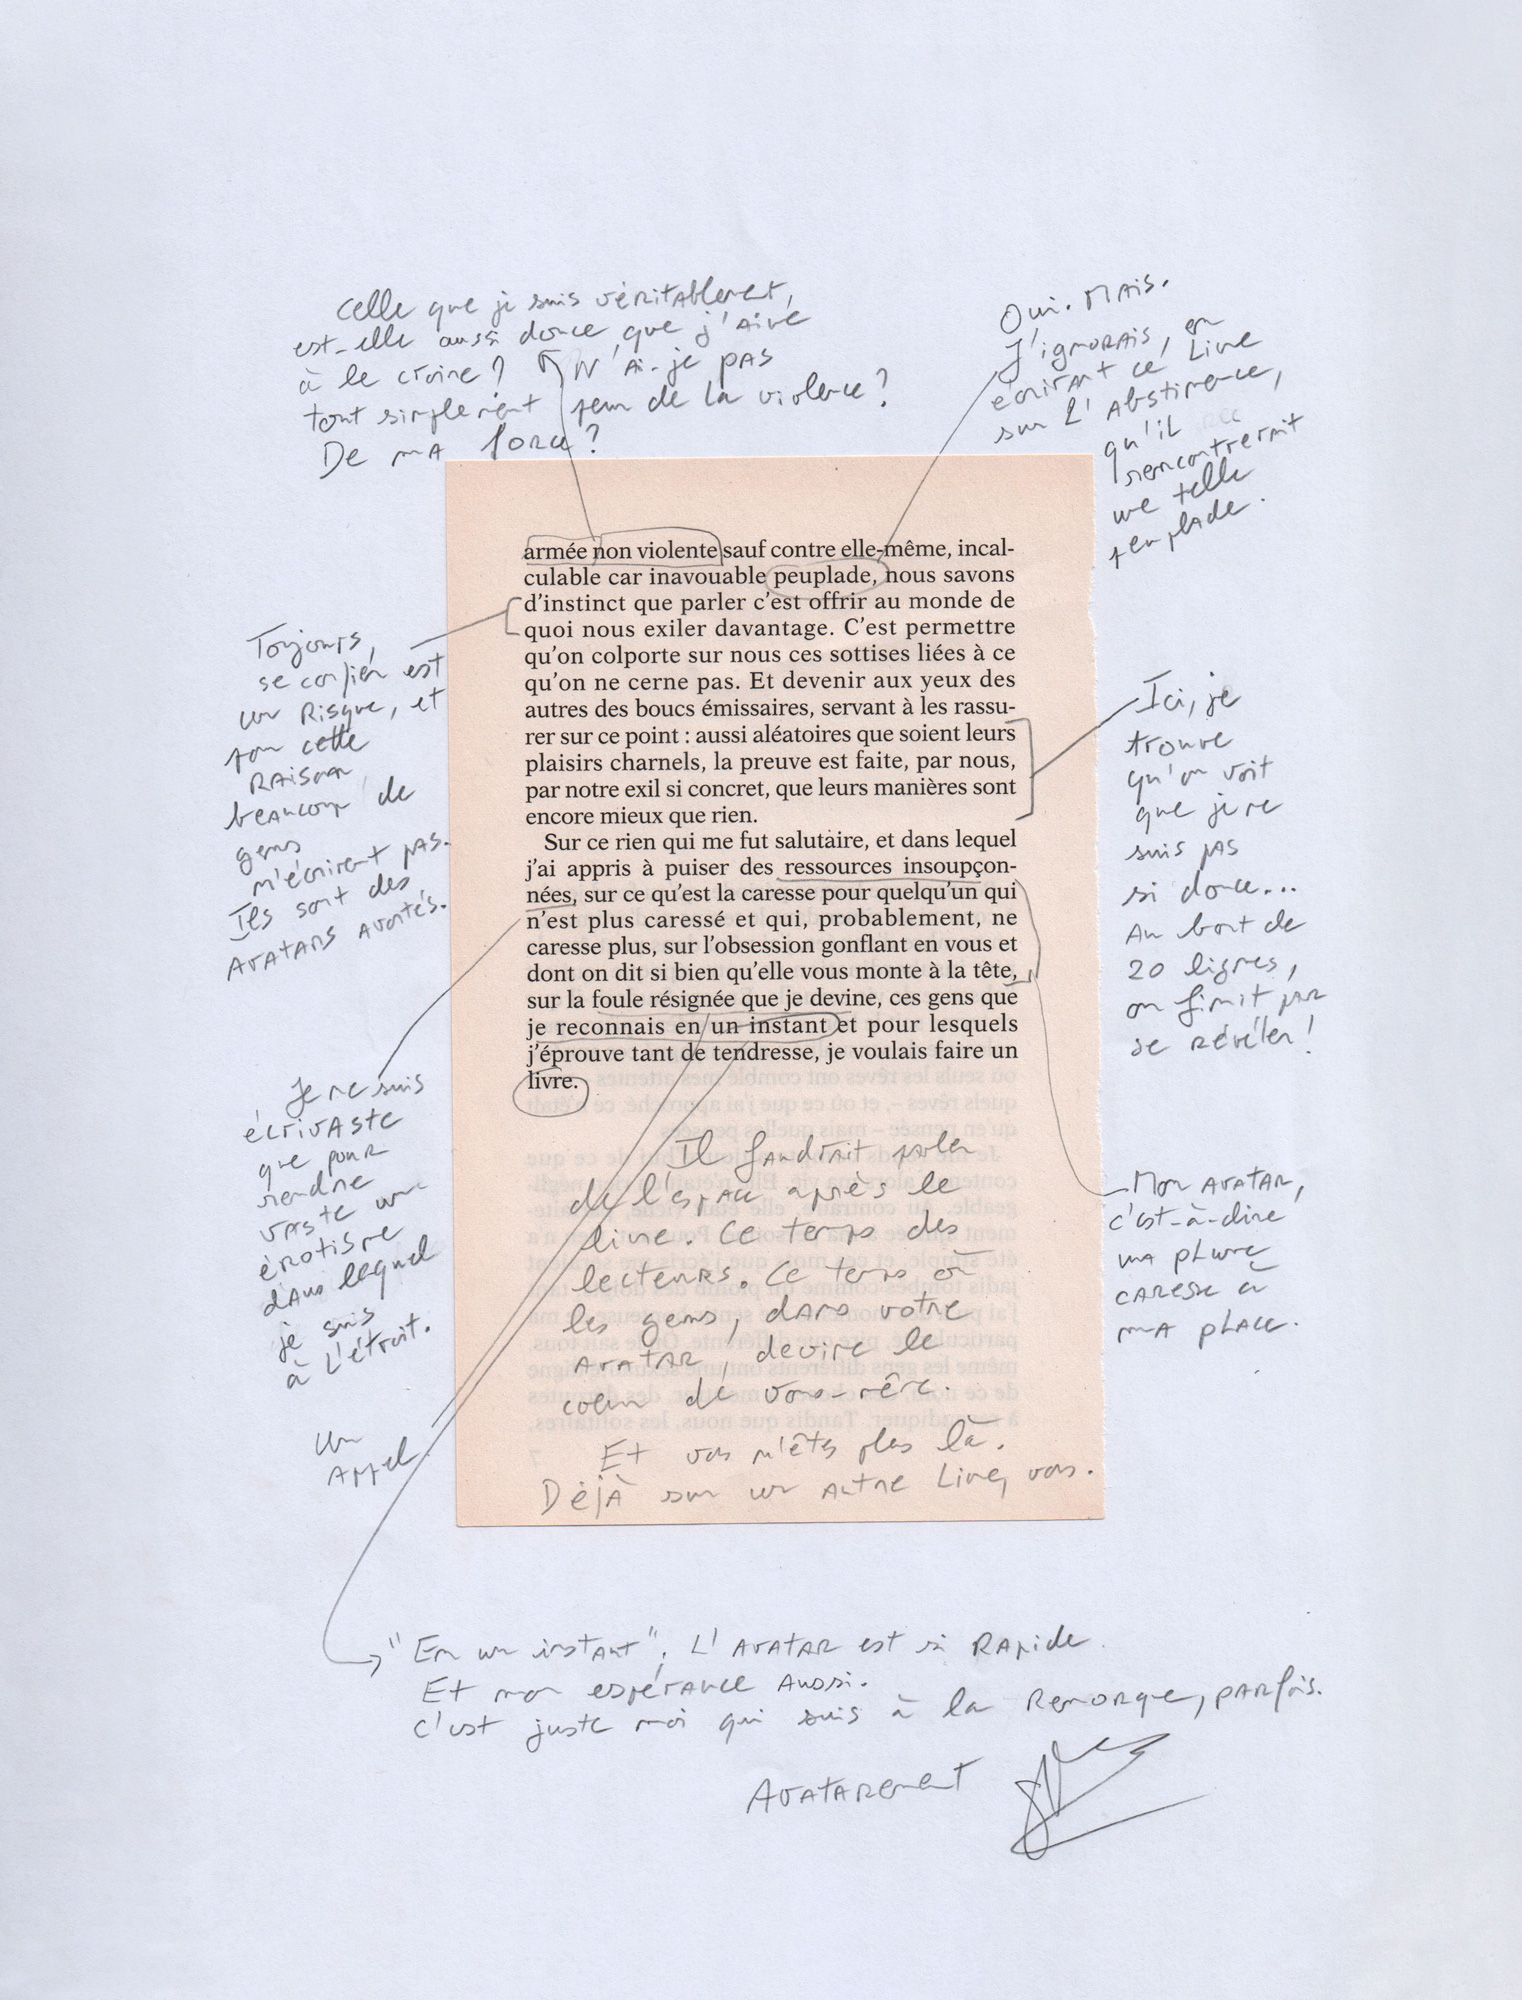 Celle que je suis véritablement,
est-elle aussi douce que j'aime
à le croire ? N'ai-je pas
tout simplement peur de la violence ?
De ma force ?
Oui. Mais.
J'ignorais, en
écrivant ce livre
sur l'Abstinence,
qu'il
rencontrerait
une telle
peuplade.
armée non violente sauf contre elle-même, incal-
culable car inavouable peuplade, nous savons
d'instinct que parler c'est offrir au monde de
quoi nous exiler davantage. C'est permettre
qu'on colporte sur nous ces sottises liées à ce
qu'on ne cerne pas. Et devenir aux yeux des
autres des boucs émissaires, servant à les rassu-
rer sur ce point : aussi aléatoires que soient leurs
plaisirs charnels, la preuve est faite, par nous,
par notre exil si concret, que leurs manières sont
encore mieux que rien.
Sur ce rien qui me fut salutaire, et dans lequel
j'ai appris à puiser des ressources insoupçon-
nées, sur ce qu'est la caresse pour quelqu'un qui
n'est plus caressé et qui, probablement, ne
caresse plus, sur l'obsession gonflant en vous et
dont on dit si bien qu'elle vous monte à la tête,
sur la foule résignée que je devine, ces gens que
je reconnais en un instant et pour lesquels
j'éprouve tant de tendresse, je voulais faire un
livre.
Toujours,
se confier est
un risque, et
pour cette
raison
beaucoup de
gens
n'écrivent pas.
Ils sont des
avatars avortés.
Ici, je
trouve
qu'on voit
que je ne
suis pas
si douce...
Au bout de
20 lignes,
on finit par
se révéler !
Je ne suis
écrivaste
que pour
rendre
vaste un
érotisme
dans lequel
je suis
à l'étroit.
Mon avatar,
c'est-à-dire
ma plume
caresse à
ma place.
Un
Appel
Il faudrait parler
de l'espace après le
livre. Ce temps des
lecteurs. Ce temps où
les gens, dans votre
avatar, devine le
cœur de vous-même.
Et vous n'êtes plus là.
Déjà sur un autre livre, vous.
"En un instant". L'avatar est si rapide.
Et mon espérance aussi.
C'est juste moi qui suis à la remorque, parfois.
Avatarement